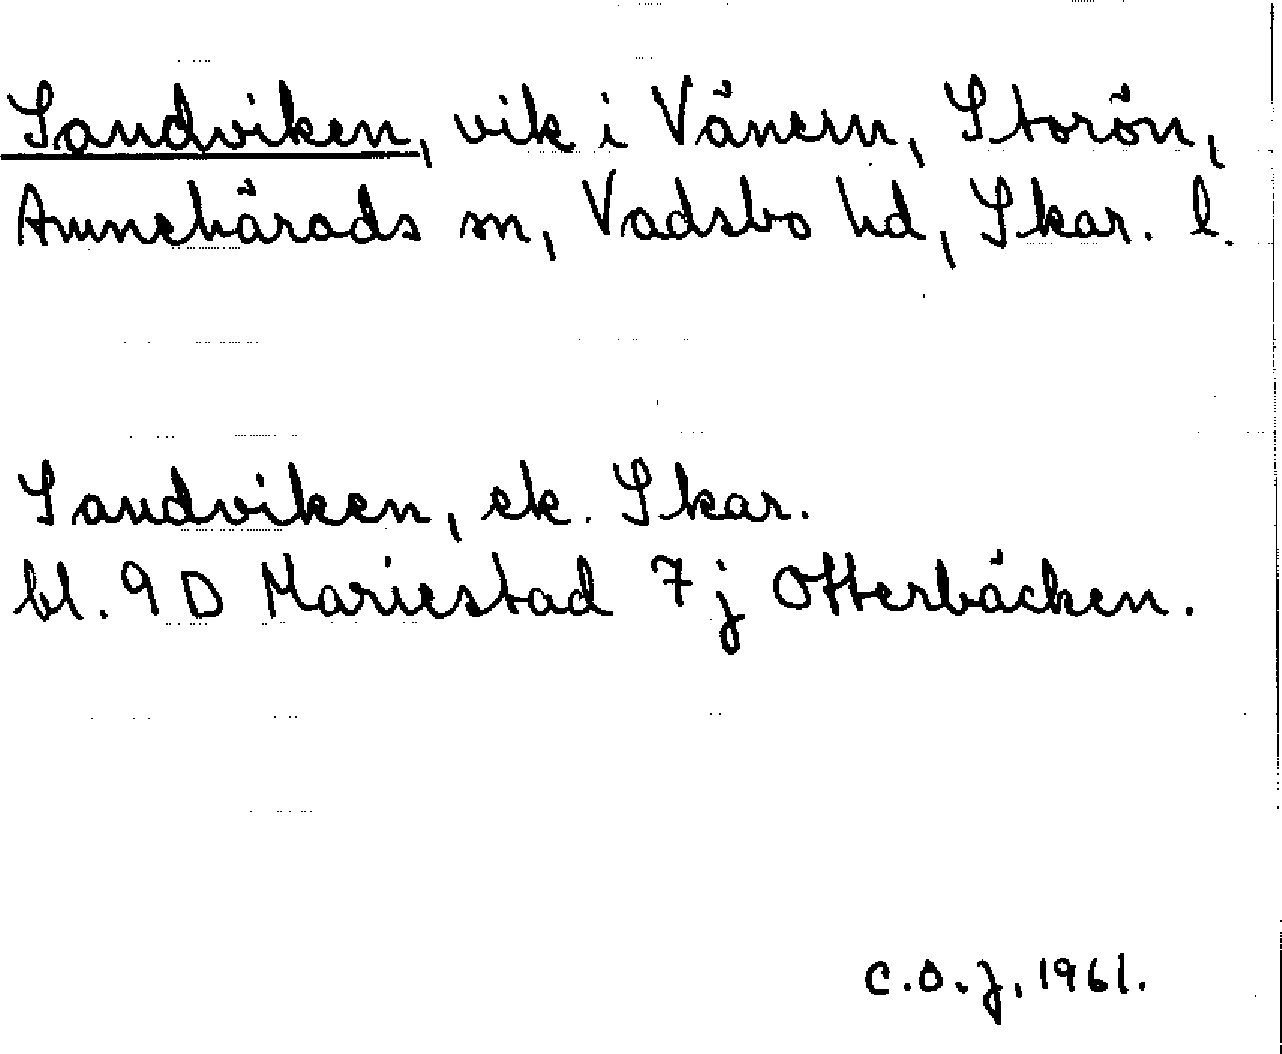 Sandviken, vik i Vänern, Storön,
Amnehärads sn, Vadsbo hd, Skar. l.
Sandviken, ek. Skar.
bl. 9 D Mariestad 7 j Otterbäcken.
C.O.J, 1961.